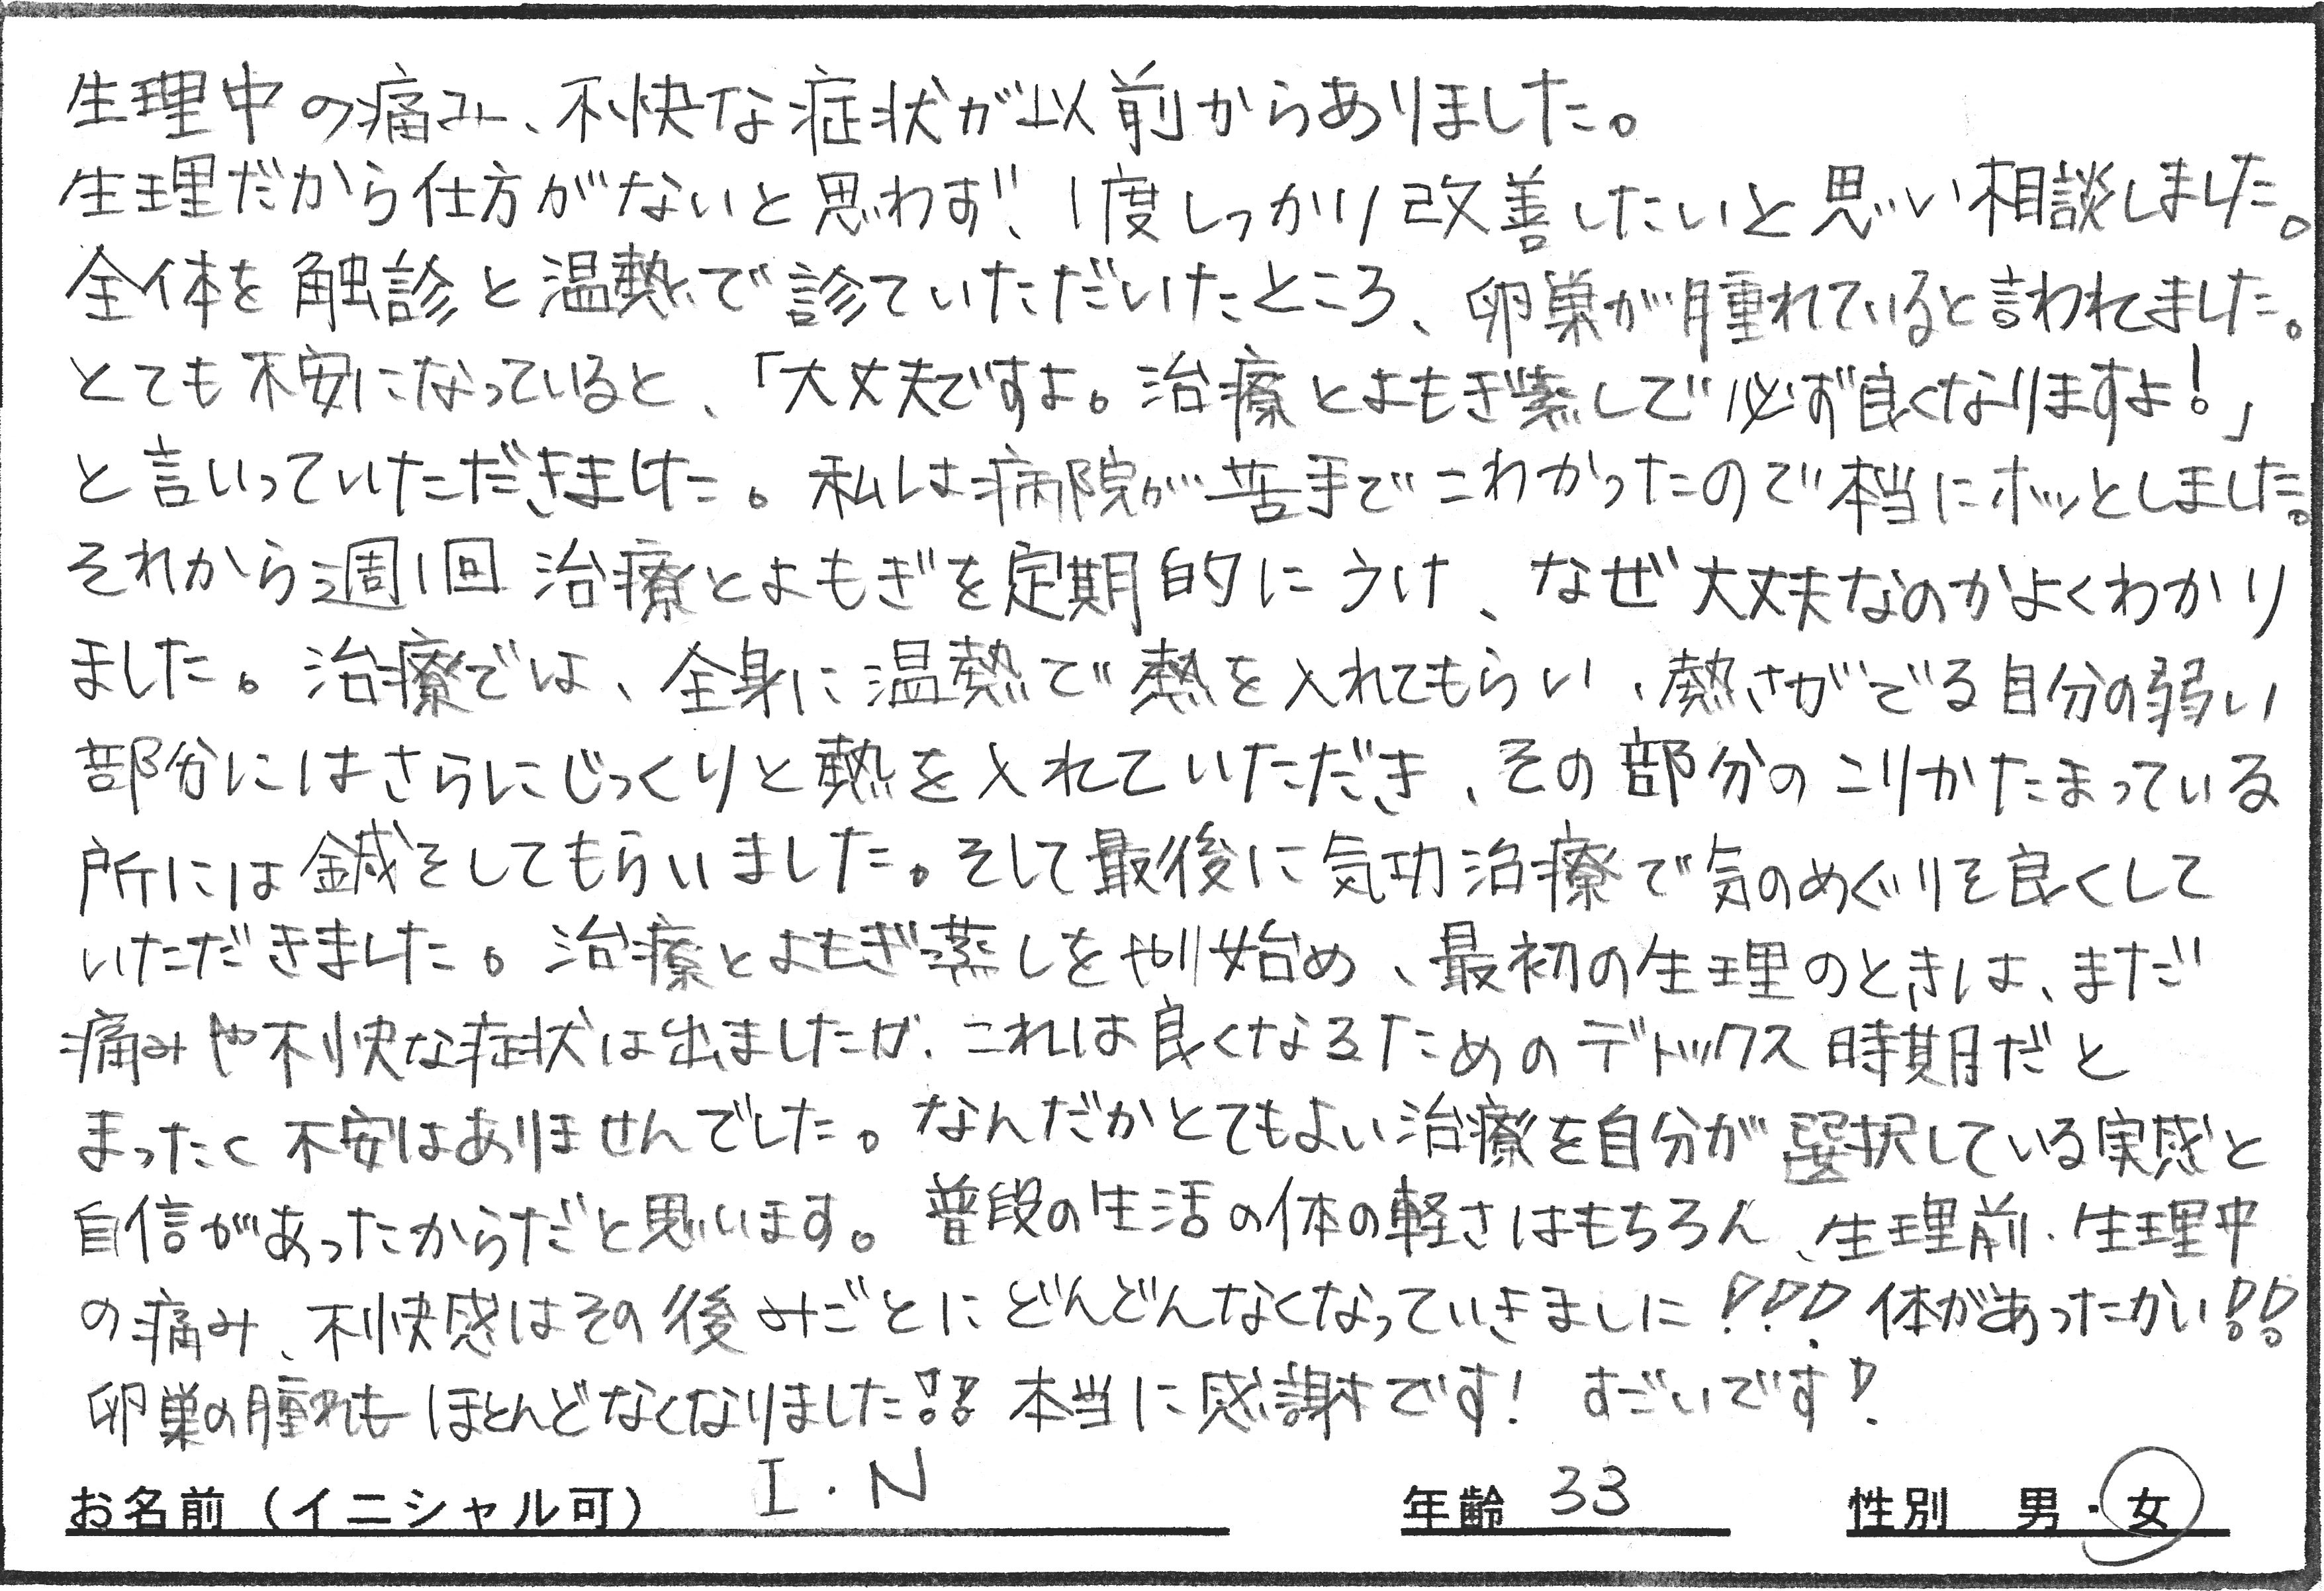 生理中の痛み、不快な症状が以前からありました。
生理だから仕方がないと思わず、1度しっかり改善したいと思い相談しました。
全体を触診と温熱で診ていただいたところ、卵巣が腫れていると言われました。
とても不安になっていると、「大丈夫ですよ。治療とよもぎ蒸しで必ず良くなりますよ!」
と言いっていただきました。私は病院が苦手でこわかったので本当にホッとしました。
それから週1回 治療とよもぎを定期的にうけ、なぜ大丈夫なのかよくわかり
ました。治療では、全身に温熱で熱を入れてもらい、熱さがでる自分の弱い
部分にはさらにじっくりと熱を入れていただき、その部分のこりかたまっている
所には鍼をしてもらいました。そして最後に気功治療で気のめぐりを良くして
いただきました。治療とよもぎ蒸しをやり始め、最初の生理のときは、まだ
痛みや不快な症状は出ましたが、これは良くなるためのデトックス時期だと
まったく不安はありませんでした。なんだかとてもよい治療を自分が選択している実感と
自信があったからだと思います。普段の生活の体の軽さはもちろん、生理前・生理中
の痛み、不快感はその後みごとにどんどんなくなっていきました!!! 体があったかい!!
卵巣の腫れもほとんどなくなりました!! 本当に感謝です! すごいです!
お名前(イニシャル可) I・N 年齢 33 性別 男・女